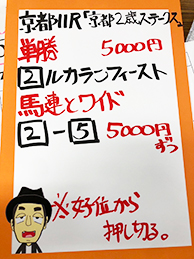 京都11R「京都2歳ステークス」
単勝 5000円
2ルカランフィースト
馬連とワイド
2-5 5000円
ずつ
※好位から
押し切る。